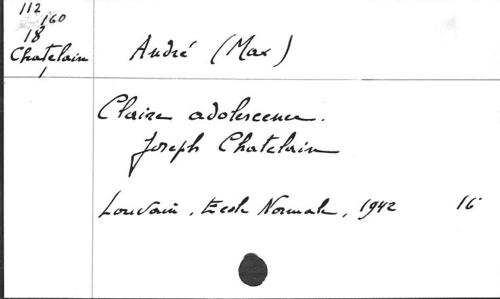 112
160
18
Chatelain
1
André (Max)
Claire adolescence.
Joseph Chatelain
Louvain, Ecole Normale, 1942 16